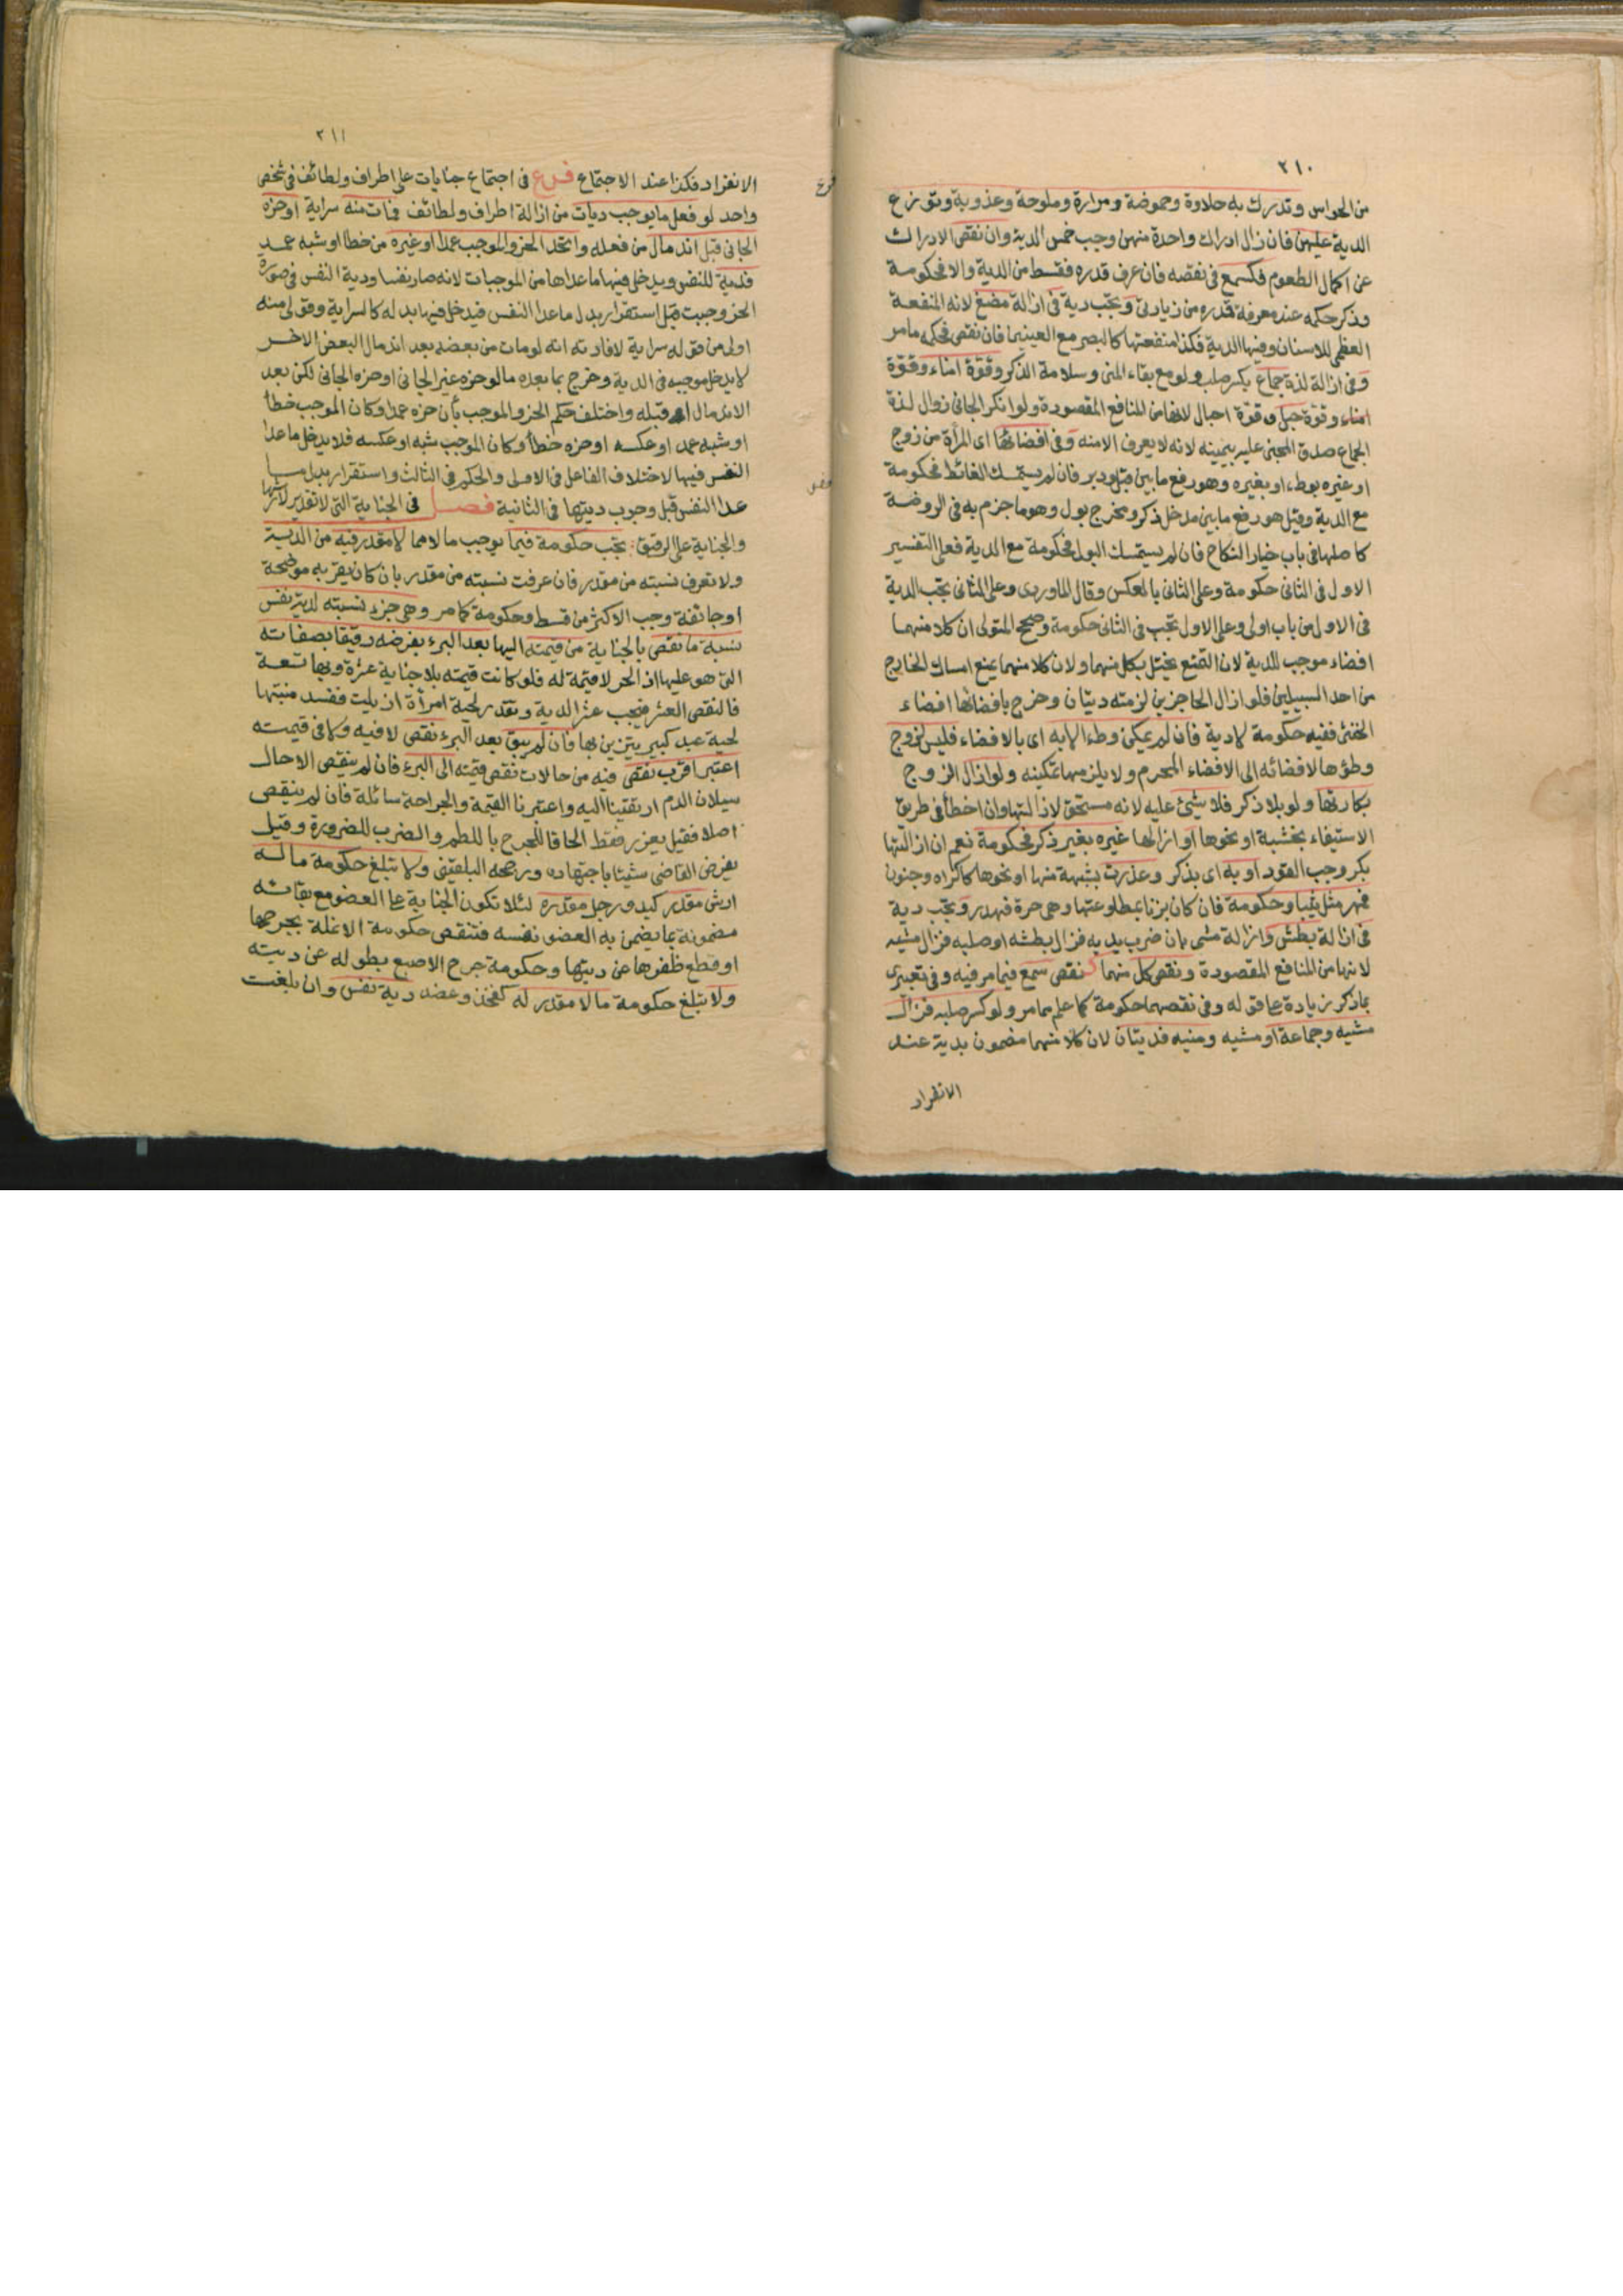 ٢١٠
من الحواس وتدرك به حلاوة وحموضة ومرارة وملوحة وعذوبة وتوزع
الدية عليهن فان زال ادراك واحدة منهن وجب خمس الدية وان نقص الادراك
عن اكمال الطعوم فكسمع فى نقصه فان عرف قدره فقسط من الدية والا فحكومة
وذكر حكمه عند معرفة قدره من زيادتى وتجب دية فى ازالة مضغ لانه المنفعة
العظمى للاسنان وفيها الدية فكذا منفعتها كالبصر مع العينين فان نقص فحكمه مامر
وفى ازالة لذة جماع بكسر صلب ولو مع بقاء المنى وسلامة الذكر وقوة امناء وقوة
امناء وقوة حبل وقوة احبال لانها من المنافع المقصودة ولو انكر الجانى زوال لذة
الجماع صدق المجنى عليه بيمينه لانه لا يعرف الا منه وفى افضائها اى المرأة من زوج
او غيره بوطء او بغيره وهو رفع ما بين قبل ودبر فان لم يستمسك الغائط فحكومة
مع الدية وقيل هو رفع ما بين مدخل ذكر ومخرج بول وهو ما جزم به فى الروضة
كاصلها فى باب خيار النكاح فان لم يستمسك البول فحكومة مع الدية فعلى التفسير
الاول فى الثانى حكومة وعلى الثانى بالعكس وقال الماوردى وعلى الثانى تجب الدية
فى الاول من باب اولى وعلى الاول تجب فى الثانى حكومة وصحح المتولى ان كلا منهما
افضاء موجب للدية لان التمتع يختل بكل منهما ولان كلا منهما يمنع امساك الخارج
من احد السبيلين فلو ازال الحاجزين لزمته ديتان وخرج بافضائها افضاء
الخنثى ففيه حكومة لا دية فان لم يمكن وطء الا به اى بالافضاء فليس لزوج
وطؤها لافضائه الى الافضاء المحرم ولا يلزمها تمكينه ولو ازال الزوج
بكارتها ولو بلا ذكر فلا شيئ عليه لانه مستحق لازالتها وان اخطأ فى طريق
الاستيفاء بخشبة او نحوها او ازالها غيره بغير ذكر فحكومة نعم ان ازالتها
بكر وجب القود او به اى بذكر وعذرت بشبهة منها او نحوها كاكراه وجنون
فمهر مثل ثيبا وحكومة فان كان بزنا بمطاوعتها وهى حرة فهدر وتجب دية
فى ازالة بطش وازالة مشى بان ضرب يديه فزال بطشه او صلبه فزال مشيه
لانها من المنافع المقصودة ونقص كل منهما كنقص سمع فيما مر فيه وفى تعبيرى
بماذكر زيادة على قوله وفى نقصهما حكومة كما علم مما مر ولو كسر صلبه فزال
مشيه وجماعه او مشيه ومنيه فديتان لان كلا منهما مضمون بدية عند
الانفراد
٢١١
الانفراد فكذا عند الاجتماع فرع فى اجتماع جنايات على اطراف ولطائف فى شخص
واحد لو فعل ما يوجب ديات من ازالة اطراف ولطائف فمات منه سراية او حزه
الجانى قبل اندمال من فعله واتحد الحز والموجب عمدا او غيره من خطأ او شبه عمد
فدية للنفس ويدخل فيها ما عداها من الموجبات لانه صار نفسا ودية النفس فى صورة
الحز وجبت قبل استقرار بدل ما عدا النفس فيدخل فيها بدله كالسراية وقولى منه
اولى من قوله سراية لافادته انه لو مات من بعضه بعد اندمال البعض الاخر
لا يدخل موجبه فى الدية وخرج بما بعده ما لو حزه غير الجانى او حزه الجانى لكن بعد
الاندمال او قبله واختلف حكم الحز والموجب بأن حزه عمدا وكان الموجب خطأ
او شبه عمد او عكسه او حزه خطأ وكان الموجب شبه او عكسه فلا يدخل ما عدا
النفس فيها لاختلاف الفاعل فى الاولى والحكم فى الثالث واستقرار بدل ما
عدا النفس قبل وجوب ديتها فى الثانية فصل فى الجناية التى لا تقدير لارشها
والجناية على الرقيق تجب حكومة فيما يوجب مالا مما لا مقدر فيه من الدية
ولا تعرف نسبته من مقدر فان عرفت نسبته من مقدر بان كان بقربه موضحة
او جائفة وجب الاكثر من قسط وحكومة كما مر وهى جزء نسبته لدية نفس
نسبة ما نقص بالجناية من قيمته اليها بعد البرء بفرضه رقيقا بصفاته
التى هو عليها اذ الحر لا قيمة له فلو كانت قيمته بلا جناية عشرة وبها تسعة
فالنقص العشر فيجب عشر الدية وتقدر لحية امرأة ازيلت ففسد منبتها
لحية عبد كبير يتزين بها فان لم يبق بعد البرء نقص لا فيه ولا فى قيمته
اعتبر اقرب نقص فيه من حالات نقص قيمته الى البرء فان لم ينقص الا حال
سيلان الدم ارتقينا اليه واعتبرنا القيمة والجراحة سائلة فان لم ينقص
اصلا فقيل يعزر فقط الحاقا للجرح باللطم والضرب للضرورة وقيل
يفرض القاضى شيئا باجتهاده ورجحه البلقينى ولا تبلغ حكومة ما له
ارش مقدر كيد ورجل مقدره لئلا تكون الجناية على العضو مع بقائه
مضمونة بما يضمن به العضو نفسه فتنقص حكومة الانملة بجرحها
او قطع ظفرها عن ديتها وحكومة جرح الاصبع بطوله عن ديته
ولا تبلغ حكومة ما لا مقدر له كفخذ وعضد دية نفس وان بلغت
فرع
فصل